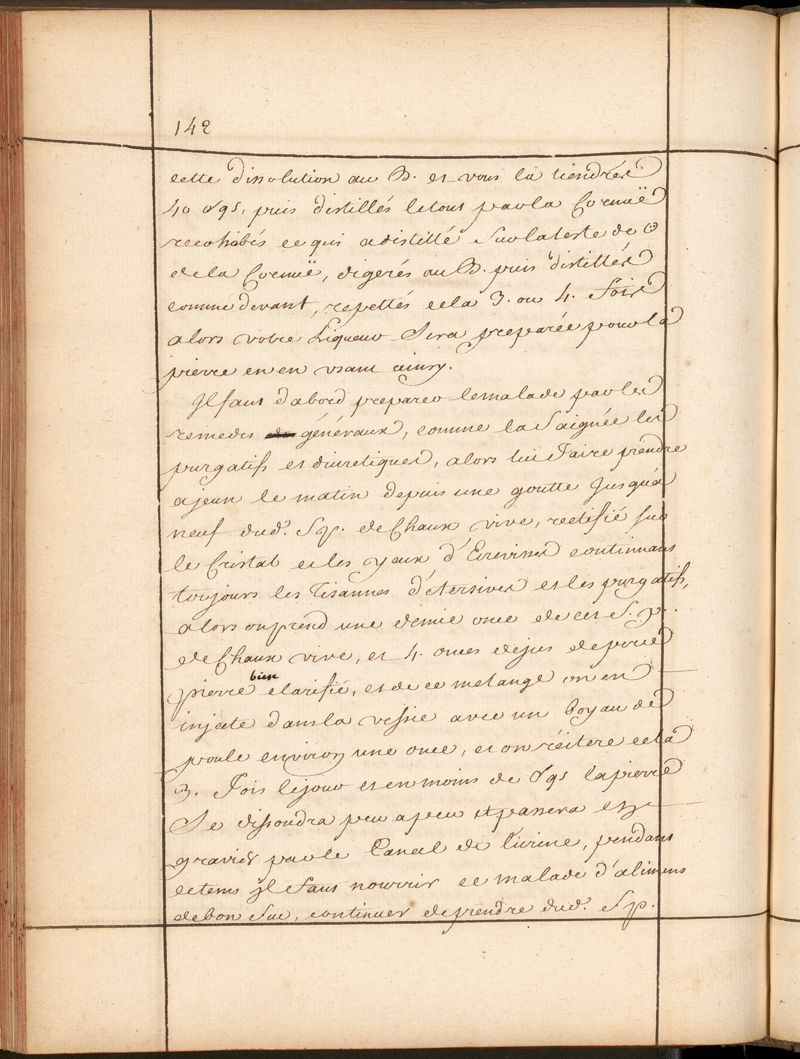 142
cette dissolution au B. et vous la tiendrés
40 jrs, puis distillés le tout par la Cornuë
recohobés ce qui a distillé sur la teste de
de la Cornuë, digerés au B. puis distillés
comme devant, repettés cela 3. ou 4. fois
alors votre Liqueur sera preparée pour la
pierre en en usant ainsy.
Il faut d'abord preparer le malade par les
remedes généraux, comme la saignée les
purgatifs et diuretiques, alors lui faire prendre
a jeun le matin depuis une goutte jusqu'a
neuf dud. Sp. de Chaux vive, rectifié sur
le Cristal et les yeux d'Ecrevisses continuant
toujours les Tisannes d'etersives et les purgatifs,
alors on prend une demie once de cet S. p.
de Chaux vive, et 4. onces de jus de percé
pierre bien clarifié, et de ce melange on en
injecte dans la vessie avec un boyau de
poule environ une once, et on réitere cela
3. fois le jour et en moins de jrs la pierre
Se dissoudra peu a peu et passera en
gravier par le Canal de l'urine, pendant
ce tems il faut nourrir ce malade d'alimens
de bon suc, continuer de prendre dud. Sp.